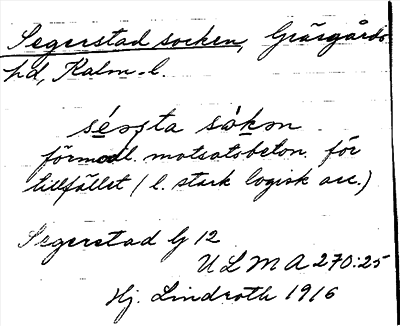 Segerstad socken, Gräsgårds
hd, Kalm. l.
séssta sókən
förmodl. motsatsbeton. för
tillfället (l. stark logisk acc.)
Segerstad G 12
ULMA 270:25
Hj. Lindroth 1916